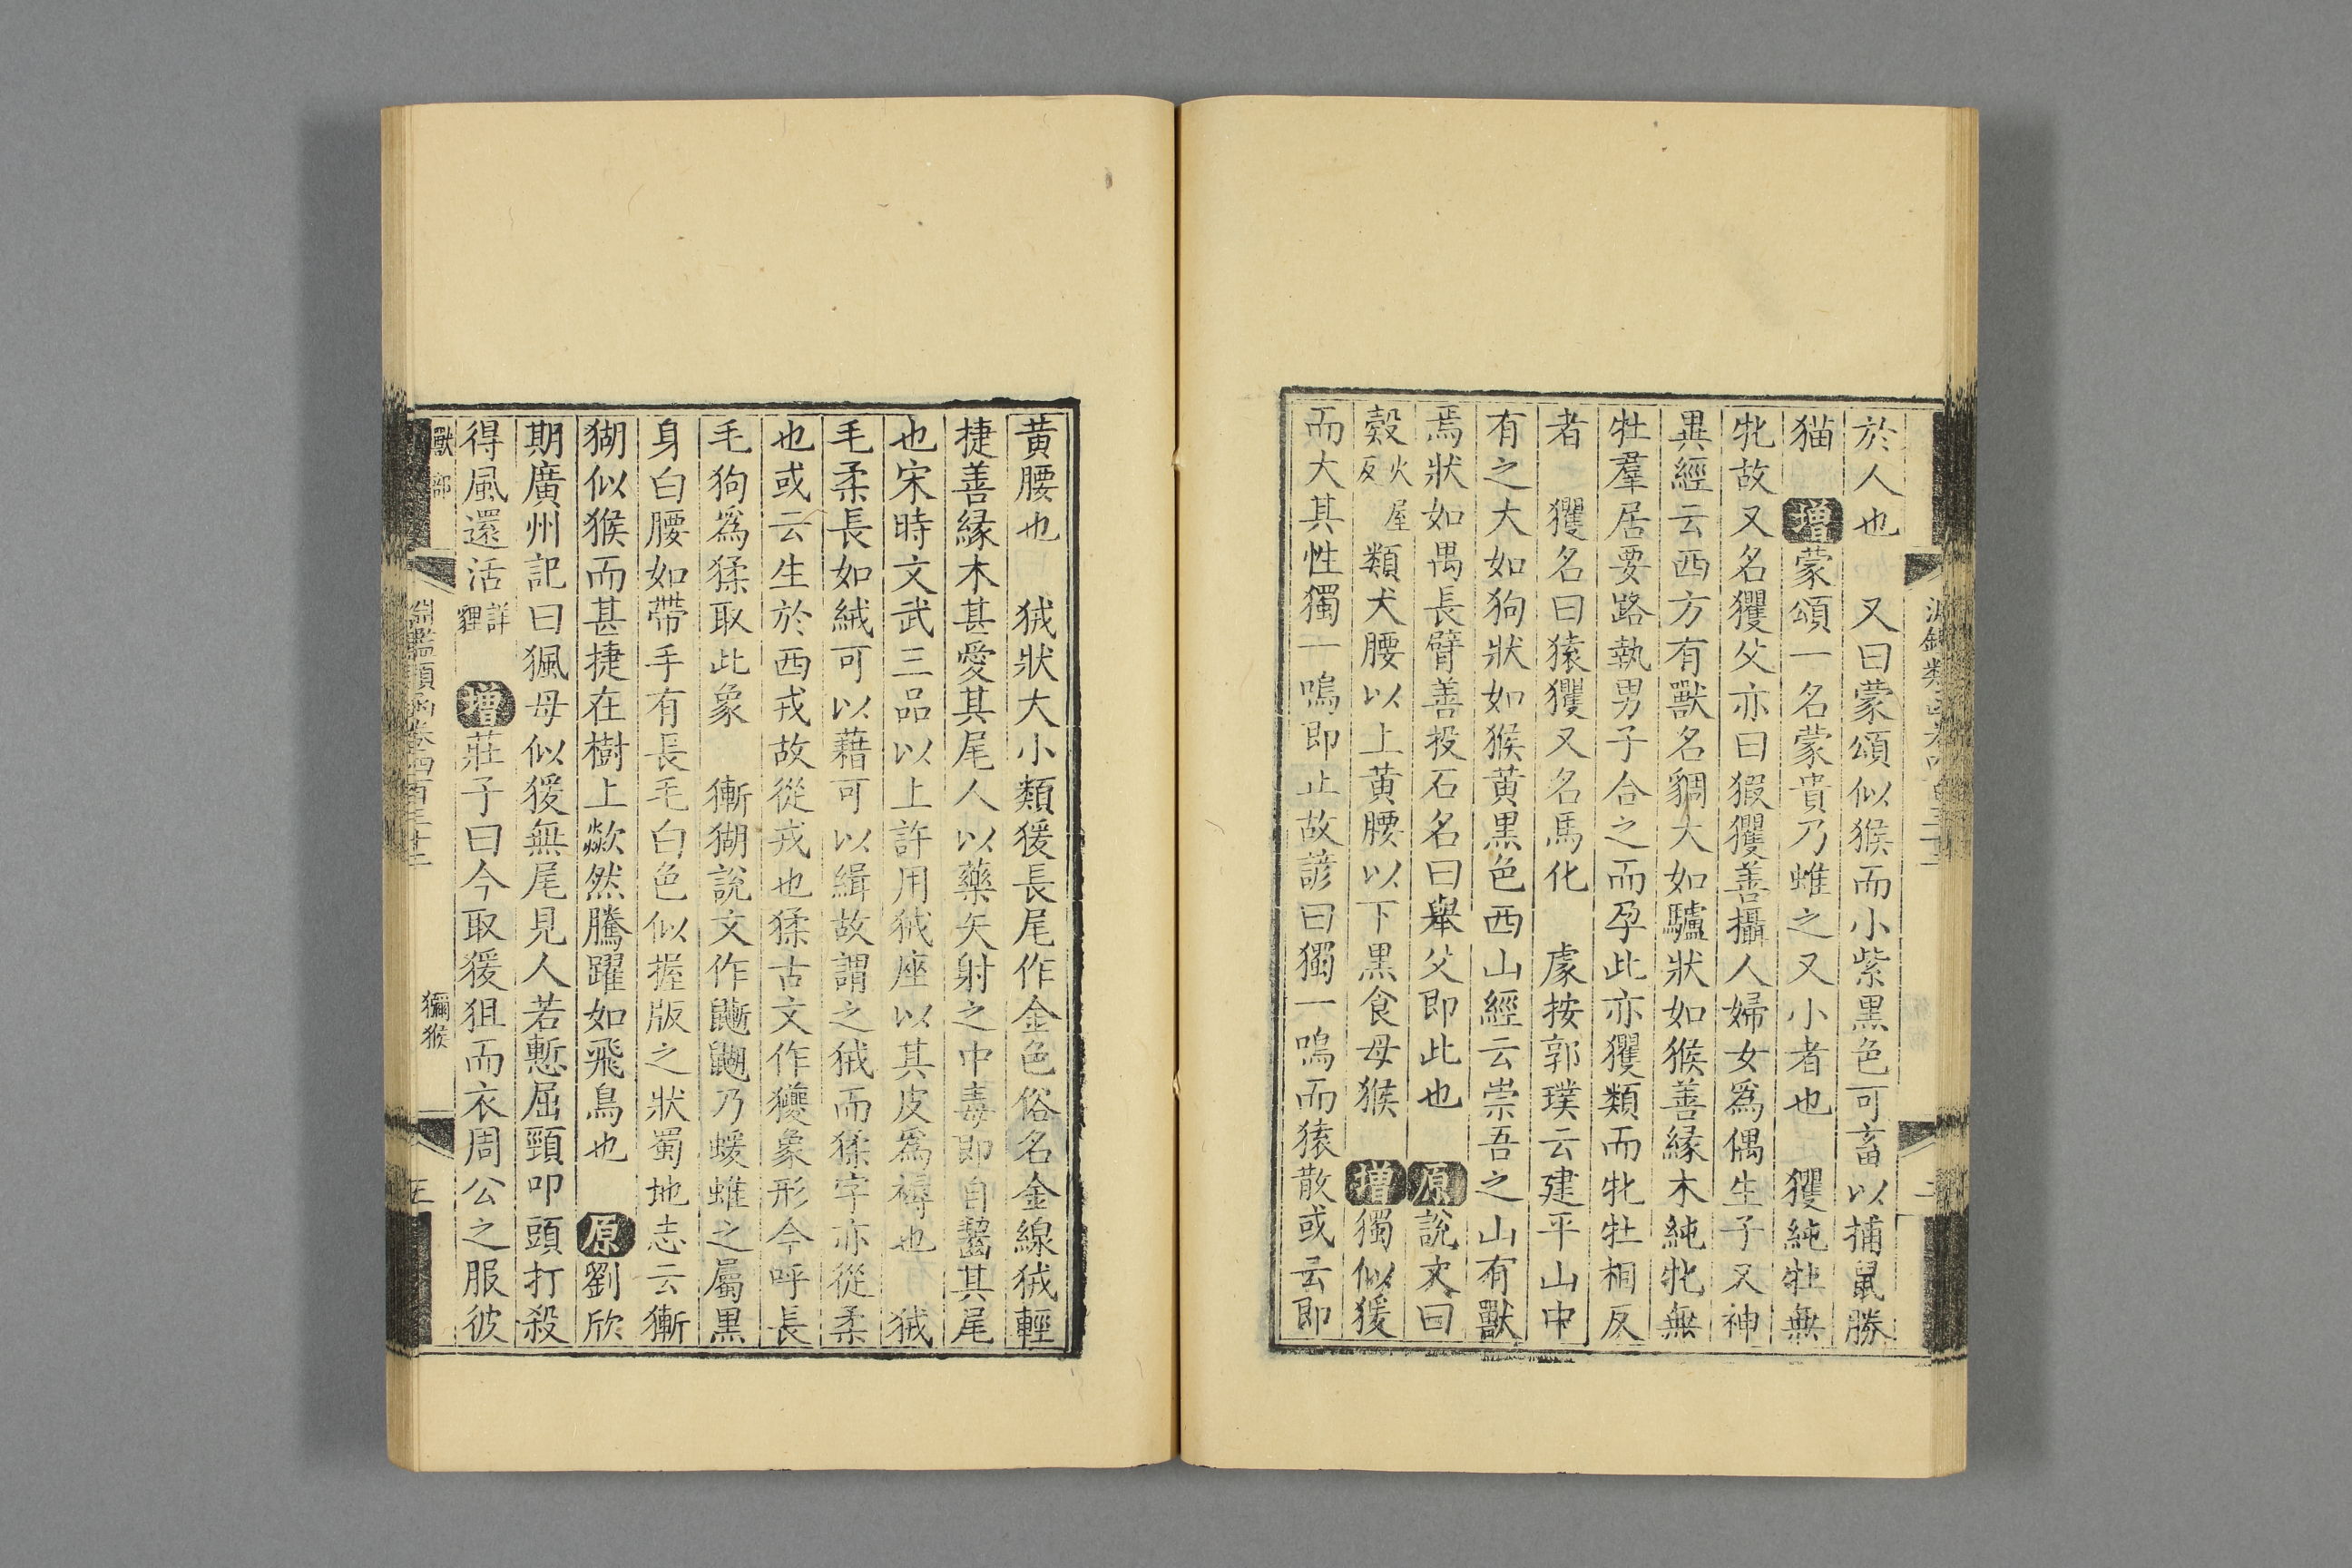 於人也　又曰蒙頌似猴而小紫黑色可畜以捕鼠勝
猫　增蒙頌一名蒙貴乃蜼之又小者也　玃純牡無
牝故又名玃父亦曰猳玃善攝人婦女爲偶生子又神
異經云西方有獸名䝞大如驢狀如猴善緣木純牝無
牡羣居要路執男子合之而孕此亦玃類而牝牡相反
者　玃名曰猿玃又名馬化　豦按郭璞云建平山中
有之大如狗狀如猴黄黑色西山經云崇吾之山有獸
焉狀如禺長臂善投石名曰舉父即此也　原說文曰
㺉火屋反類犬腰以上黄腰以下黑食母猴　增獨似猨
而大其性獨一鳴即止故諺曰獨一鳴而猿散或云即
黄腰也　狨狀大小類猨長尾作金色俗名金線狨輕
捷善緣木甚愛其尾人以藥矢射之中毒即自齧其尾
也宋時文武三品以上許用狨座以其皮爲褥也　狨
毛柔長如絨可以藉可以緝故謂之狨而猱字亦從柔
也或云生於西戎故從戎也猱古文作夒象形今呼長
毛狗爲猱取此象　獑猢說文作䶮䶅乃蝯蜼之屬黑
身白腰如帶手有長毛白色似握版之狀蜀地志云獑
猢似猴而甚捷在樹上歘然騰躍如飛鳥也　原劉欣
期廣州記曰猦母似猨無尾見人若慙屈頸叩頭打殺
得風還活詳貍　增莊子曰今取猨狙而衣周公之服彼
獸部　淵鑑類函卷四百三十二　獼猴　三